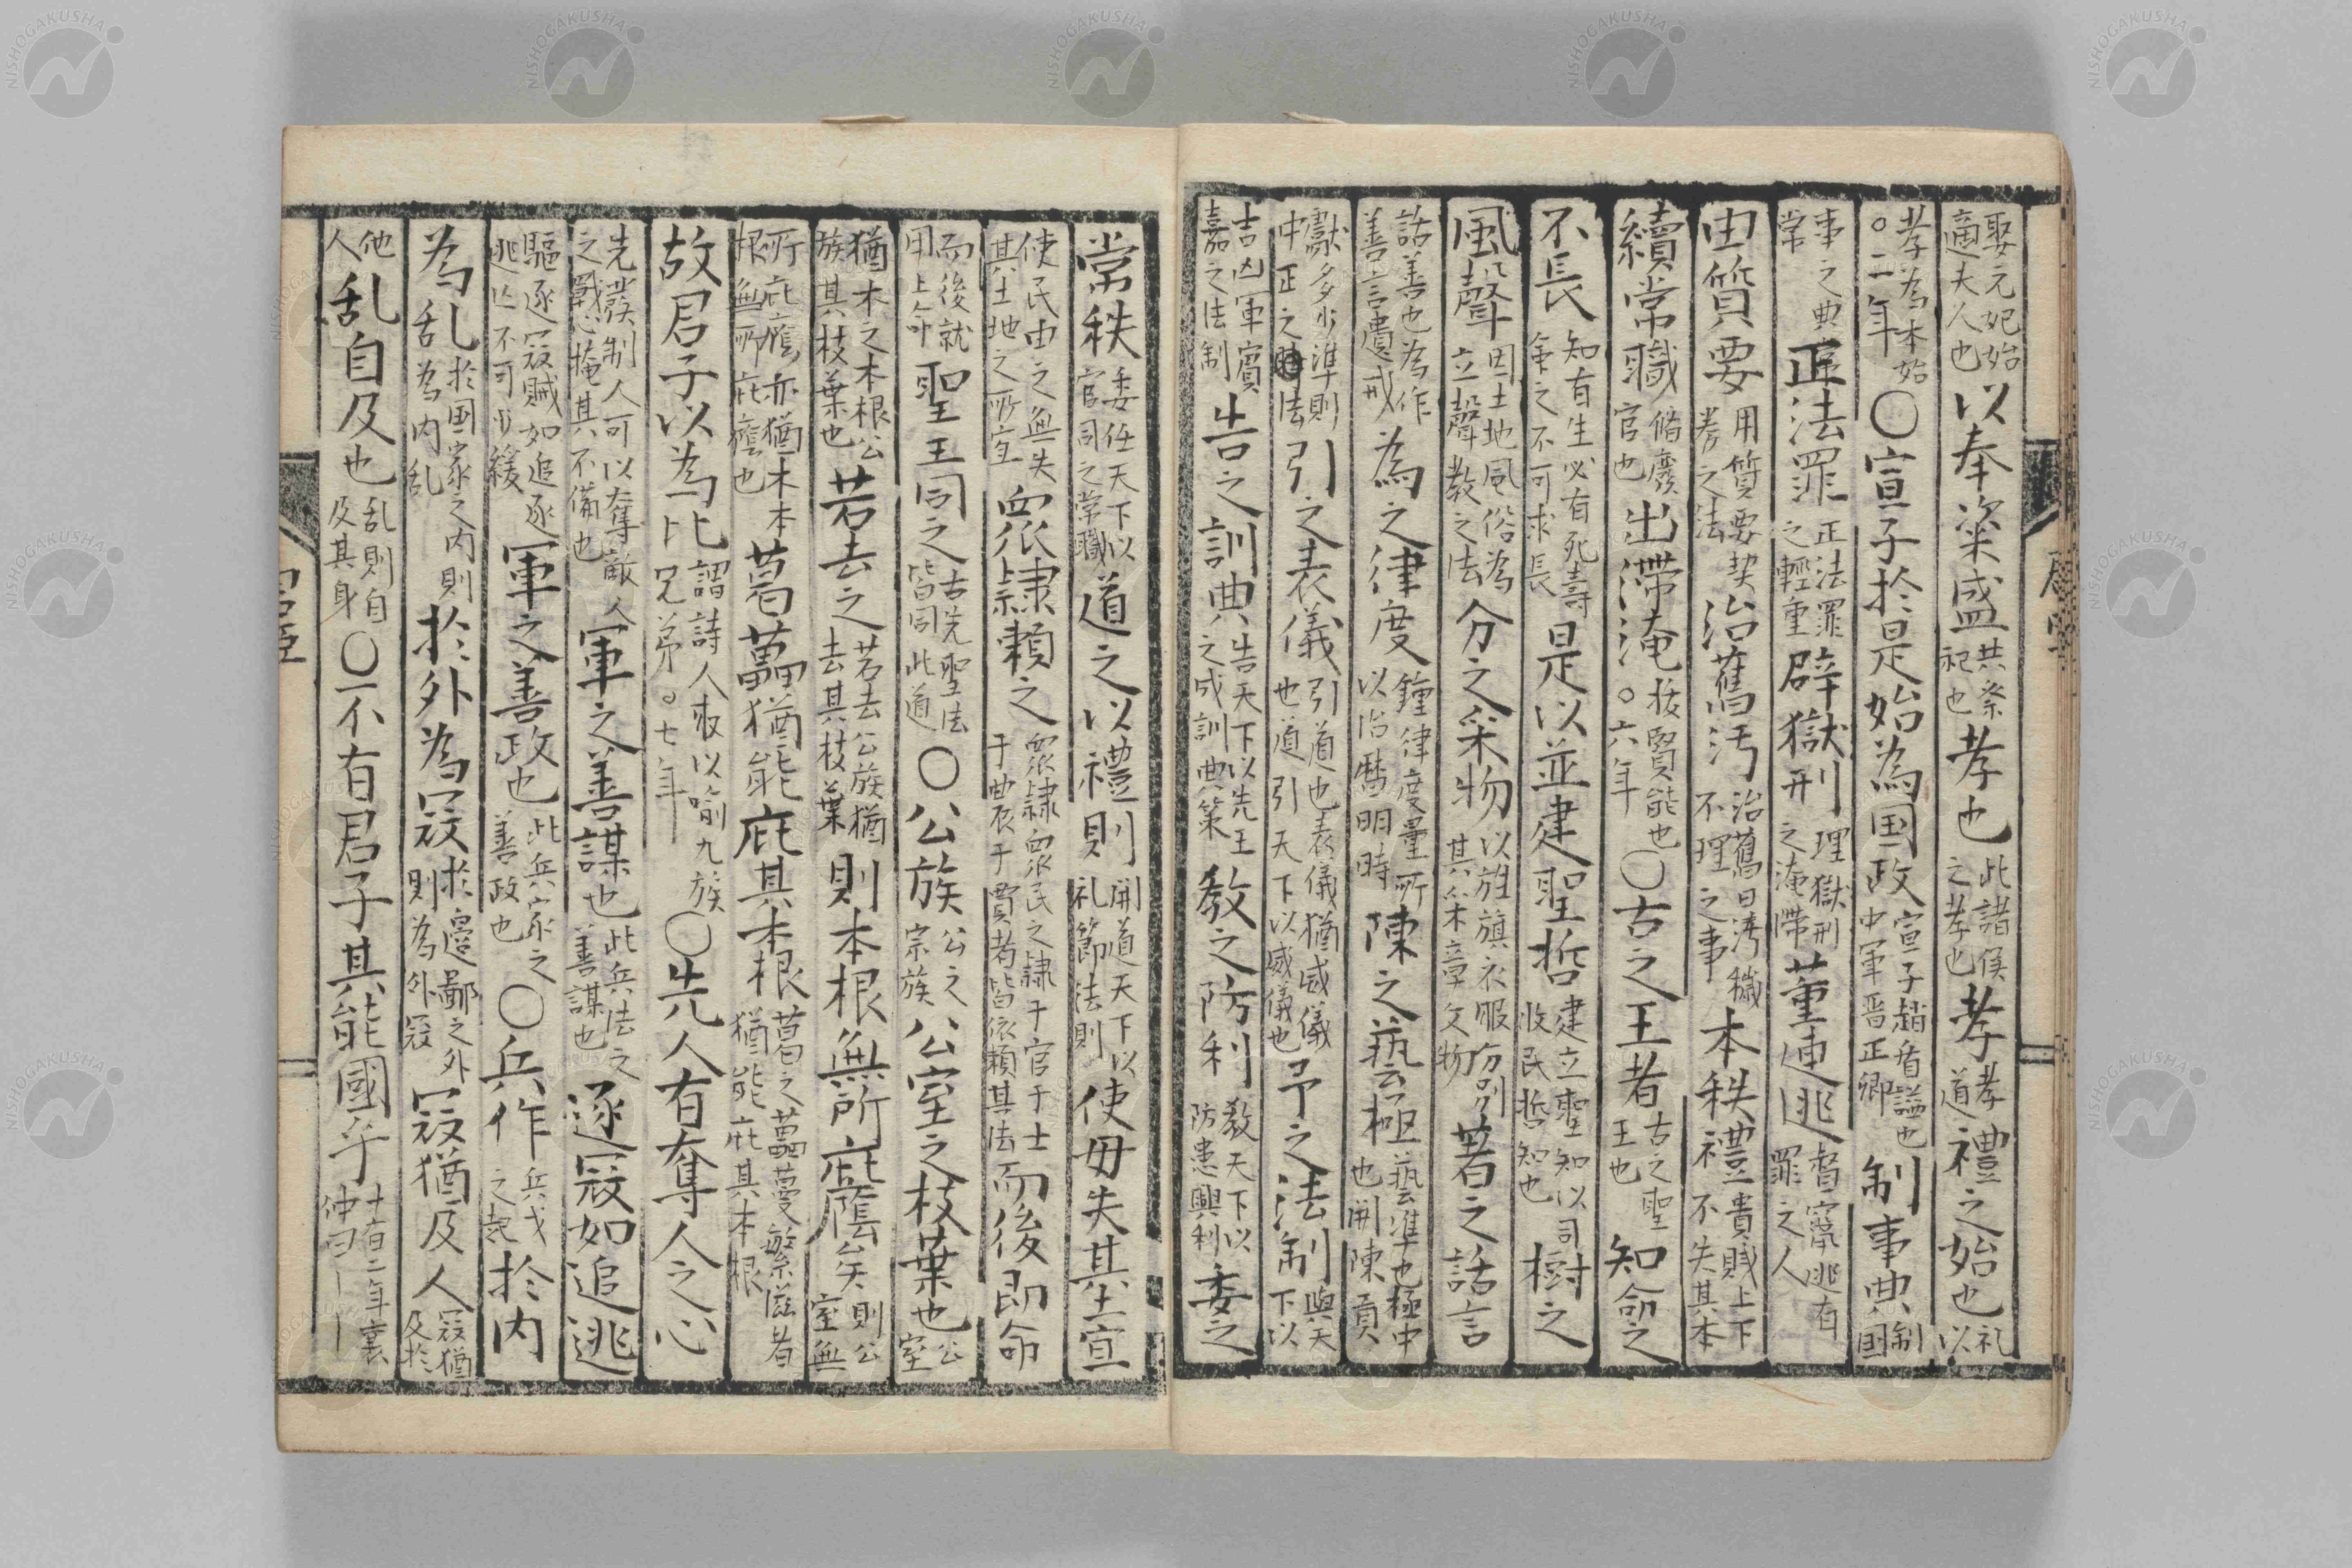 娶元妃始適夫人也以奉粢盛共祭祀也孝也此諸侯之孝也孝孝道禮之始也礼以
孝為本始○二年○宣子於是始為国政宣子趙盾謚也中軍晋正卿制事典制國
事之典常正法罪正法罪之輕重辟獄刑理獄刑之淹滞董逋逃督察逃有罪之人
由質要用質要契券之法治舊汚治舊日汚穢不理之事本秩禮貴賤上下不失其本
續常職脩廢官也出滞淹拔賢能也○六年○古之王者古之聖王也知命之
不長知有生必有死壽年之不可求長是以並建聖哲建立聖知以司牧民哲知也樹之
風聲因土地風俗為立聲教之法分之采物以旌旗衣服分別其采章文物著之話言
話善也為作善言遺戒為之律度鐘律度量所以治暦明時陳之藝極藝準也極中也開陳貢
獻多少準則中正之法引之表儀引道也表儀猶威儀也道引天下以威儀也予之法制與天下以
吉凶軍賓嘉之法制告之訓典告天下以先王之成訓典策教之防利教天下以防患興利委之
常秩委任天下以官司之常職道之以禮則開道天下以礼節法則使毋失其土宜
使民由之無失其土地之所宜衆隷頼之衆隷衆民之隷于官于士于農于賈者皆依頼其法而後即命
而後就用上命聖王同之古先聖法皆同此道○公族公之宗族公室之枝葉也公室
猶木之木根公族其枝葉也若去之若去公族猶去其枝葉則本根無所庇蔭矣則公室無
所庇廕亦猶木本根無所庇廕也葛藟猶能庇其本根葛之藟蔓繁滋者猶能庇其本根
故君子以為比謂詩人取以喻九族兄弟○七年○先人有奪人之心
先發制人可以奪敵人之戰心掩其不備也軍之善謀也此兵法之善謀也逐寇如追逃
驅逐寇賊如追逐逃亡不可少緩軍之善政也此兵家之善政也○兵作兵戈之起於内
為乱於国家之内則為内乱於外為寇於邊鄙之外則為外寇寇猶及人寇猶及於
他人乱自及也乱則自及其身○不有君子其能國乎十有二年襄仲曰